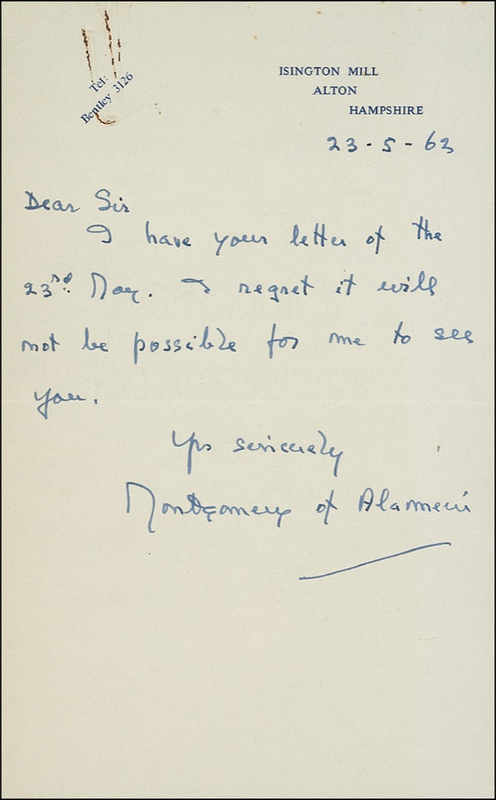 Tel:
Bentley 3126
ISINGTON MILL
ALTON
HAMPSHIRE
23-5-63
Dear Sir
I have your letter of the
23rd. May. I regret it will
not be possible for me to see
you.
Yrs sincerely
Montgomery of Alamein